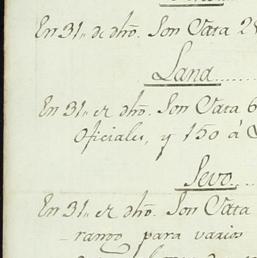 En 31,, de dho. Son Data 2
Lana
En 31,, er dho. Son Data 6
Oficiales, y 150 á
Sevo
En 31,, er dho. Son Data
rango para varios